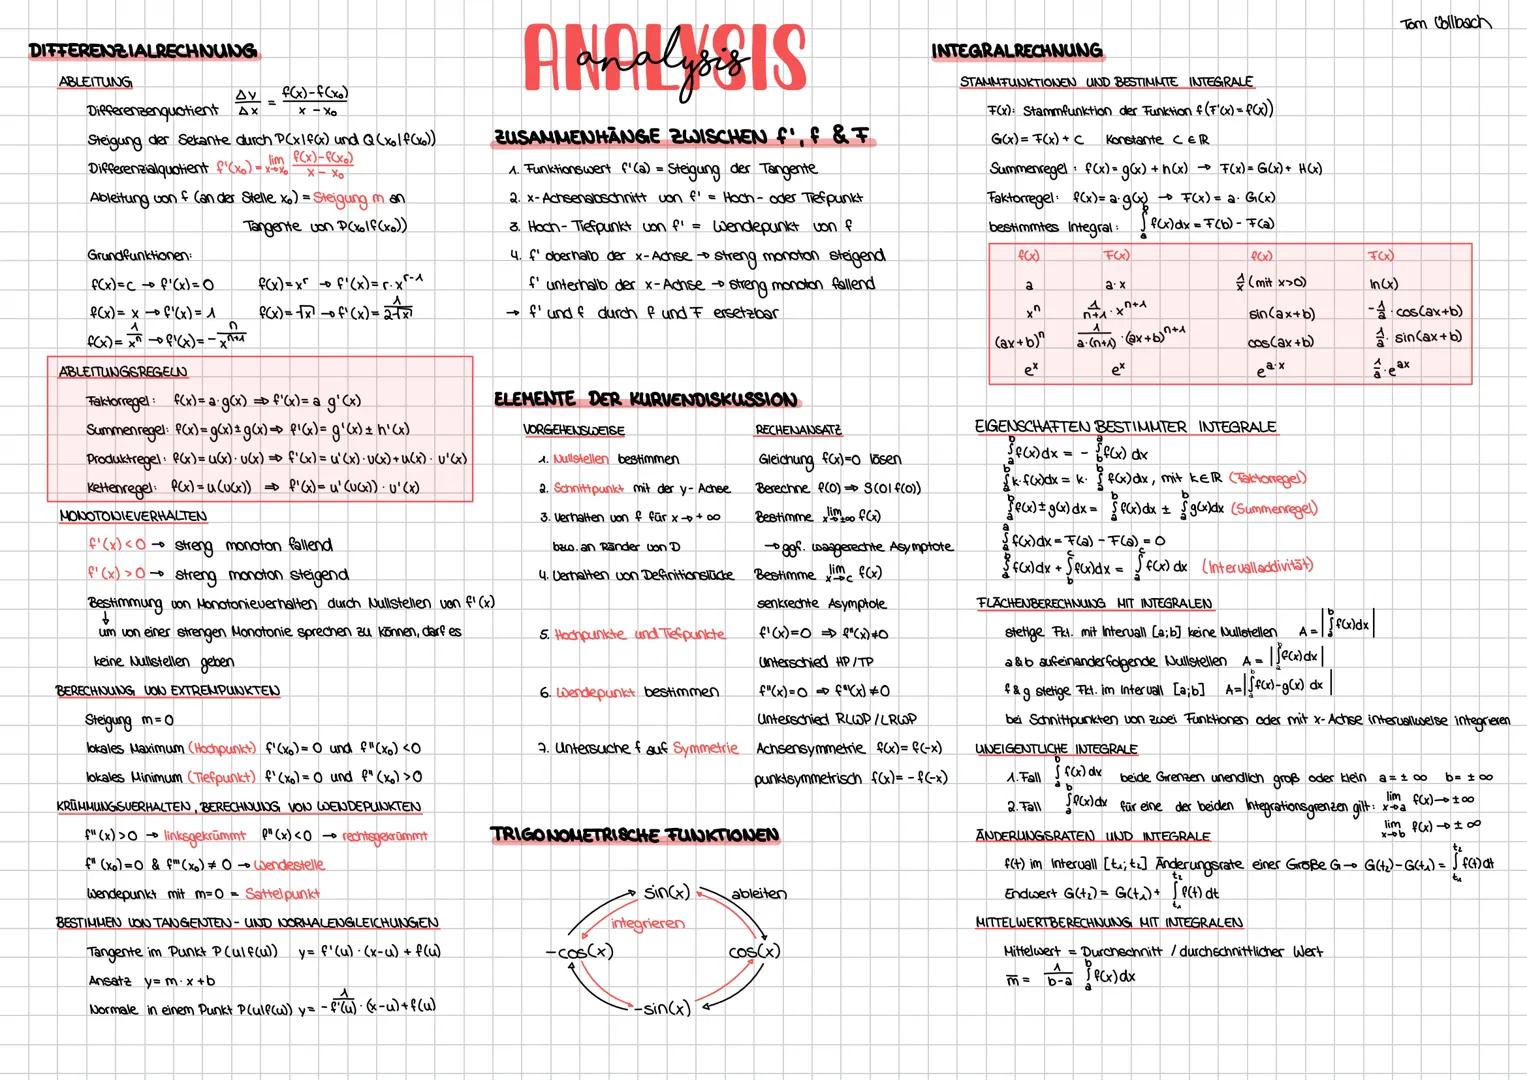 Tom Völlbach
ANALYSIS
analysis
DIFFERENZIALRECHNUNG
ABLEITUNG
Differenzenquotient Δy/Δx = f(x)-f(x₀)/x-x₀
Steigung der Sekante durch P(x|f(x) und Q(x₀|f(x₀))
Differenzialquotient f'(x₀) = lim x→x₀ f(x)-f(x₀)/x-x₀
Ableitung von f (an der Stelle x₀) = Steigung m an
Tangente von P(x₀|f(x₀))
Grundfunktionen:
f(x)=c → f'(x)=0 f(x)=xʳ → f'(x)=r·xʳ⁻¹
f(x)=x → f'(x)=1 f(x)=√x → f'(x)=1/2√x
f(x)=1/xⁿ → f'(x)=-n/xⁿ⁺¹
ABLEITUNGSREGELN
Faktorregel: f(x)=a·g(x) ⇒ f'(x)=a g'(x)
Summenregel: f(x)=g(x)±g(x) ⇒ f'(x)=g'(x)±h'(x)
Produktregel: f(x)=u(x)·v(x) ⇒ f'(x)=u'(x)·v(x)+u(x)·v'(x)
Kettenregel: f(x)=u(v(x)) ⇒ f'(x)=u'(v(x))·v'(x)
MONOTONIEVERHALTEN
f'(x)<0 → streng monoton fallend
f'(x)>0 → streng monoton steigend
Bestimmung von Monotonieverhalten durch Nullstellen von f'(x)
↓
um von einer strengen Monotonie sprechen zu können, darf es
keine Nullstellen geben
BERECHNUNG VON EXTREMPUNKTEN
Steigung m=0
lokales Maximum (Hochpunkt) f'(x₀)=0 und f"(x₀)<0
lokales Minimum (Tiefpunkt) f'(x₀)=0 und f"(x₀)>0
KRÜMMUNGSVERHALTEN, BERECHNUNG VON WENDEPUNKTEN
f"(x)>0 → linksgekrümmt f"(x)<0 → rechtsgekrümmt
f"(x₀)=0 & f'''(x₀)≠0 → Wendestelle
Wendepunkt mit m=0 = Sattelpunkt
BESTIMMEN VON TANGENTEN- UND NORMALENGLEICHUNGEN
Tangente im Punkt P(u|f(u)) y=f'(u)·(x-u)+f(u)
Ansatz y=m·x+b
Normale in einem Punkt P(u|f(u)) y=-1/f'(u)·(x-u)+f(u)
ZUSAMMENHÄNGE ZWISCHEN f', f & F
1. Funktionswert f'(a) = Steigung der Tangente
2. x-Achsenabschnitt von f' = Hoch- oder Tiefpunkt
3. Hoch-Tiefpunkt von f' = Wendepunkt von f
4. f' oberhalb der x-Achse → streng monoton steigend
f' unterhalb der x-Achse → streng monoton fallend
→ f' und f durch f und F ersetzbar
ELEMENTE DER KURVENDISKUSSION
VORGEHENSWEISE RECHENANSATZ
1. Nullstellen bestimmen Gleichung f(x)=0 lösen
2. Schnittpunkt mit der y-Achse Berechne f(0) ⇒ S(0|f(0))
3. Verhalten von f für x→+∞ Bestimme lim x→±∞ f(x)
bzw. an Ränder von D → ggf. waagerechte Asymptote
4. Verhalten von Definitionslücke Bestimme lim x→c f(x)
senkrechte Asymptole
5. Hochpunkte und Tiefpunkte f'(x)=0 ⇒ f"(x)≠0
Unterschied HP/TP
6. Wendepunkt bestimmen f"(x)=0 ⇒ f'''(x)≠0
Unterschied RLWP/LRWP
7. Untersuche f auf Symmetrie Achsensymmetrie f(x)=f(-x)
punktsymmetrisch f(x)=-f(-x)
TRIGONOMETRISCHE FUNKTIONEN
sin(x) ableiten
integrieren
-cos(x) cos(x)
-sin(x)
INTEGRALRECHNUNG
STAMMFUNKTIONEN UND BESTIMMTE INTEGRALE
F(x): Stammfunktion der Funktion f (F'(x)=f(x))
G(x)=F(x)+C Konstante C∈ℝ
Summenregel: f(x)=g(x)+h(x) → F(x)=G(x)+H(x)
Faktorregel: f(x)=a·g(x) → F(x)=a·G(x)
bestimmtes Integral: ∫ₐᵇ f(x)dx=F(b)-F(a)
f(x) F(x) f(x) F(x)
a a·x 1/x (mit x>0) ln(x)
xⁿ 1/n+1·xⁿ⁺¹ sin(ax+b) -1/a·cos(ax+b)
(ax+b)ⁿ 1/a·(n+1)·(ax+b)ⁿ⁺¹ cos(ax+b) 1/a·sin(ax+b)
eˣ eˣ eᵃ·ˣ 1/a·eᵃˣ
EIGENSCHAFTEN BESTIMMTER INTEGRALE
∫ₐᵇ f(x)dx = -∫ᵇᵃ f(x) dx
∫ₐᵇ k·f(x)dx = k·∫ₐᵇ f(x)dx, mit k∈ℝ (Faktorregel)
∫ₐᵇ f(x)±g(x)dx = ∫ₐᵇ f(x)dx ± ∫ₐᵇ g(x)dx (Summenregel)
∫ₐᵃ f(x)dx=F(a)-F(a)=0
∫ₐᵇ f(x)dx+∫ᵇᶜ f(x)dx = ∫ₐᶜ f(x)dx (Intervalladdivität)
FLÄCHENBERECHNUNG MIT INTEGRALEN
stetige Fkt. mit Intervall [a;b] keine Nullstellen A=|∫ₐᵇ f(x)dx|
a&b aufeinanderfolgende Nullstellen A=|∫ₐᵇ f(x)dx|
f&g stetige Fkt. im Intervall [a;b] A=|∫ₐᵇ f(x)-g(x) dx|
bei Schnittpunkten von zwei Funktionen oder mit x-Achse intervallweise integrieren
UNEIGENTLICHE INTEGRALE
1. Fall ∫ₐᵇ f(x)dx beide Grenzen unendlich groß oder klein a=±∞ b=±∞
2. Fall ∫ₐᵇ f(x)dx für eine der beiden Integrationsgrenzen gilt: lim x→a f(x)→±∞
lim x→b f(x)→±∞
ÄNDERUNGSRATEN UND INTEGRALE
f(t) im Intervall [t₁;t₂] Änderungsrate einer Größe G → G(t₂)-G(t₁)=∫t₁t₂ f(t)dt
Endwert G(t₂)=G(t₁)+∫t₁t₂ f(t)dt
MITTELWERTBERECHNUNG MIT INTEGRALEN
Mittelwert = Durchschnitt / durchschnittlicher Wert
m̄ = 1/b-a ∫ₐᵇ f(x)dx